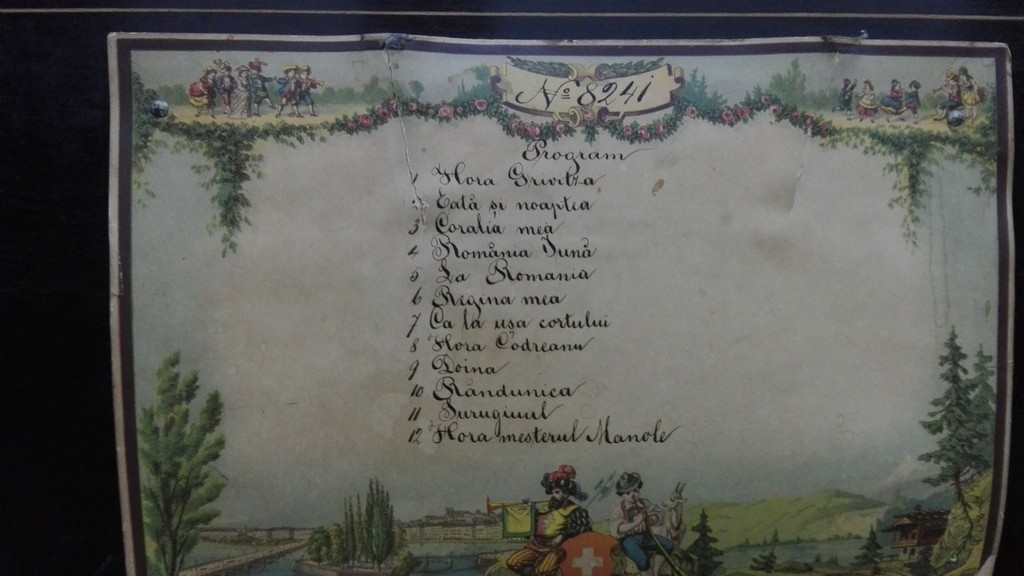 No 8241
Program
1 Hora Grivitza
2 Eată și noaptea
3 Coralia mea
4 România Jună
5 La Romania
6 Regina mea
7 Ca la ușa cortului
8 Hora Codreanu
9 Doina
10 Rândunica
11 Surugiuul
12 Hora mesterul Manole